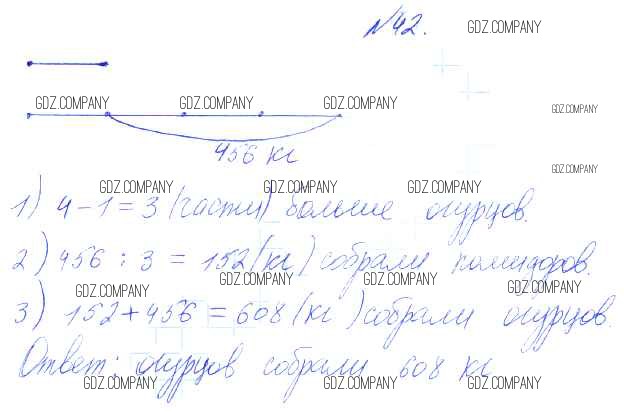 №42.
GDZ.COMPANY
GDZ.COMPANY GDZ.COMPANY GDZ.COMPANY GDZ.COMPANY
456 кг
GDZ.COMPANY
GDZ.COMPANY GDZ.COMPANY GDZ.COMPANY
1) 4-1=3 (части) больше огурцов.
2) 456 : 3 = 152 (кг) собрали помидоров.
GDZ.COMPANY GDZ.COMPANY GDZ.COMPANY GDZ.COMPANY
3) 152+456=608 (кг) собрали огурцов.
Ответ: огурцов собрали 608 кг
GDZ.COMPANY GDZ.COMPANY GDZ.COMPANY